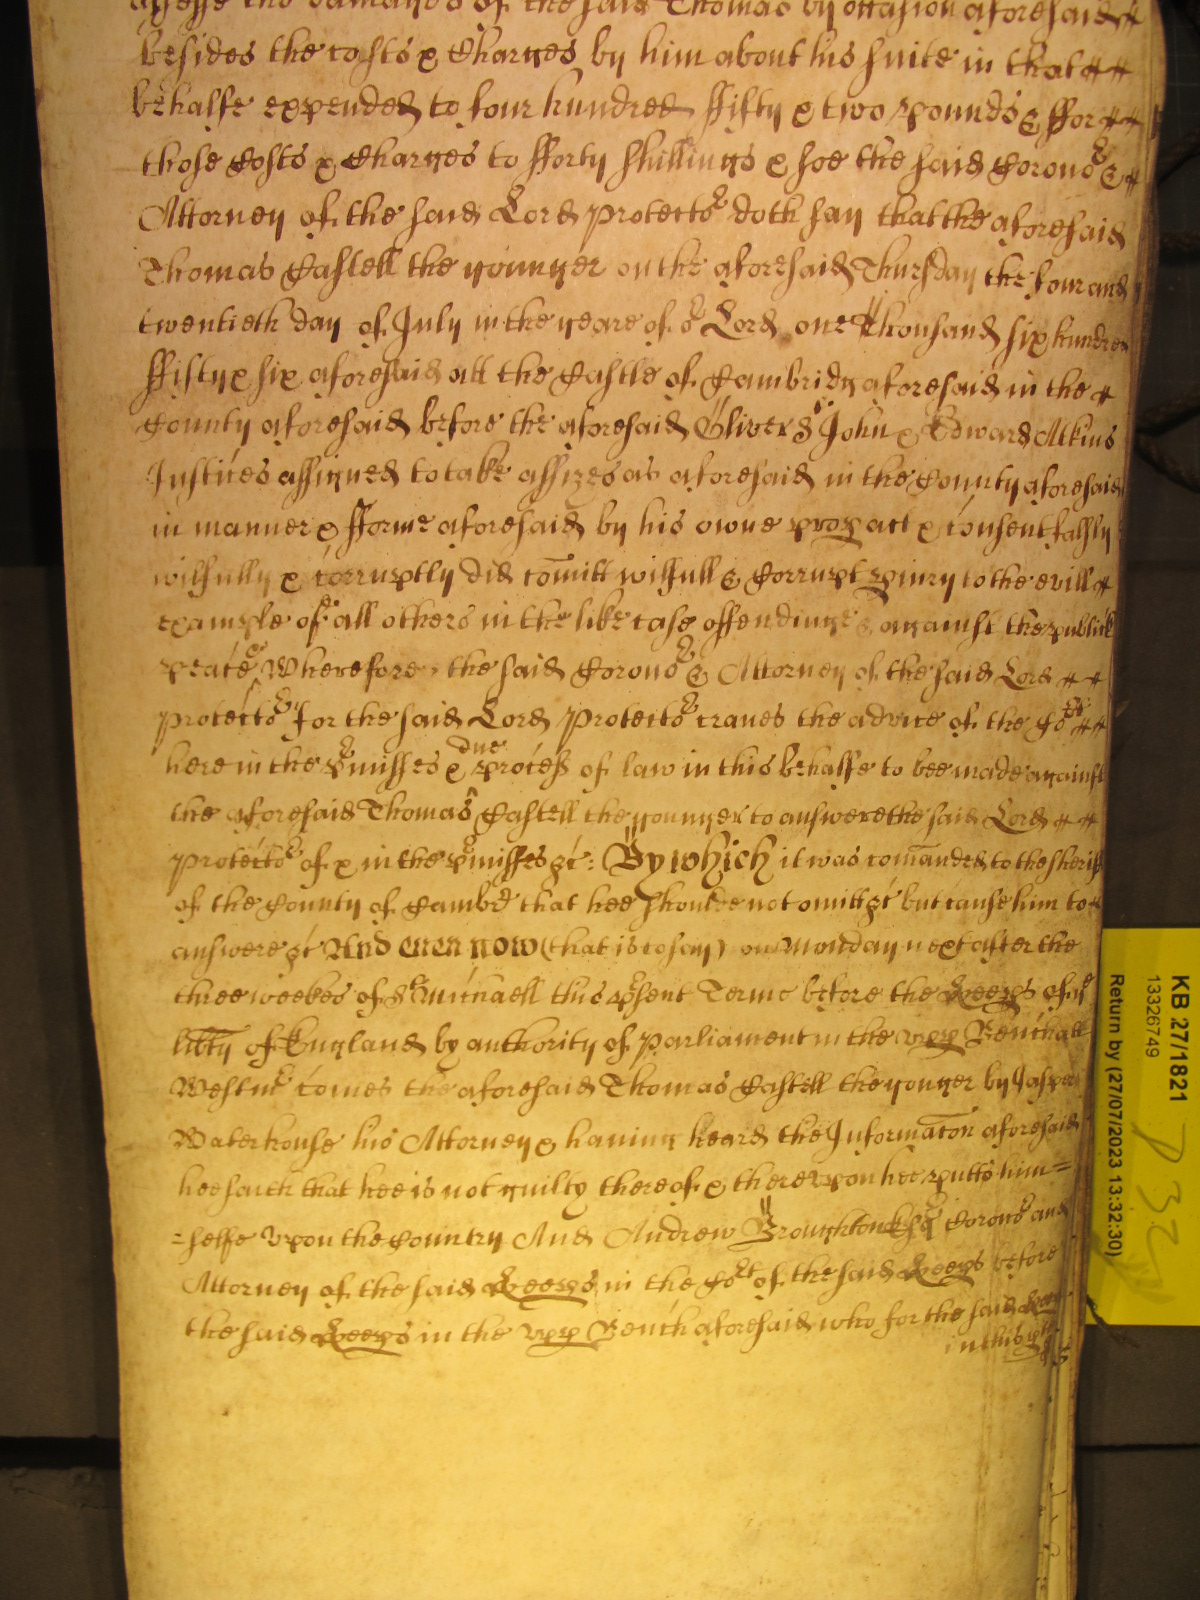 assesse the damages of the said Thomas by occasion aforesaid
besides the costs & Charges by him about his suite in that
behalfe expended to four hundred ffifty & two pounds & ffor
those Costs & Charges to fforty shillings & soe the said Corono^r &
Attorney of the said Lord Protecto^r doth say that the aforesaid
Thomas Castell the younger on the aforesaid Thursday the four and
twentieth day of July in the yeare of o^r Lord one Thousand six hundred
ffifty & six aforesaid att the Castle of Cambridg aforesaid in the
County aforesaid before the aforesaid Oliver S^t John & Edward Atkins
Justices assigned to take assizes as aforesaid in the County aforesaid
in manner & fforme aforesaid by his owne prop act & consent falsly
wilfully & corruptly did comitt wilfull & Corrupt piury to the evill
example of all others in the like case offendinge & against the publick
peace &c Wherefore the said Corono^r & Attorney of the said Lord
Protecto^r for the said Lord Protecto^r craves the advice of the Co^rt
here in the p^rmisses & due process of law in this behalfe to bee made against
the aforesaid Thomas Castell the younger to answere the said Lord
Protecto^r of & in the p^rmisses &c: By which it was comanded to the sheriff
of the County of Cambr that hee should not omitt &c but cause him to
answere &c And even now (that is to say) on Monday next after the
three weekes of S^t Michaell this p^rsent Terme before the Keeps of y^e
libty of England by authority of Parliament in the upp Bench att
Westm^r comes the aforesaid Thomas Castell the yonger by Jasper
Waterhouse his Attorney & having heard the Informacon aforesaid
hee saith that hee is not guilty thereof & thereupon hee putts him=
=selfe upon the Country And Andrew Broughton Esq^r Corono^r and
Attorney of the said Keeps in the Co^rt of the said Keeps before
the said Keeps in the upp Bench aforesaid who for the said Keeps
in this
KB 27/1821
13326749
Return by (27/07/2023 13:32:30)